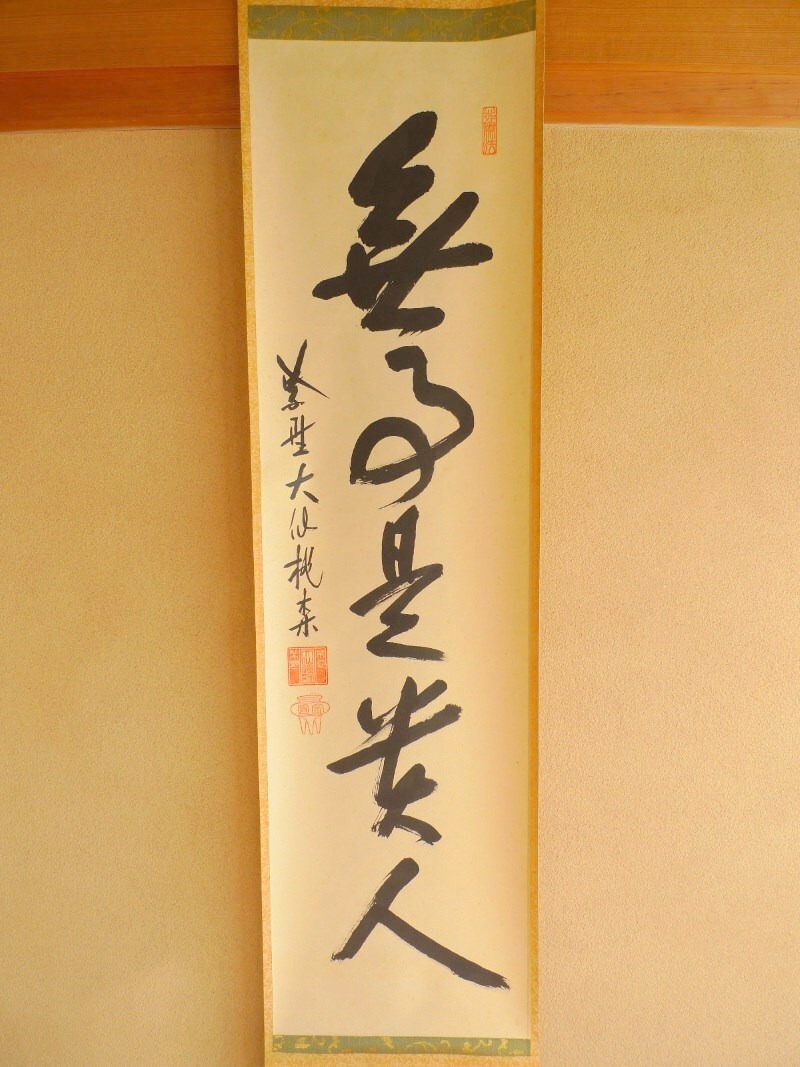 無事是貴人
紫野大仙桃